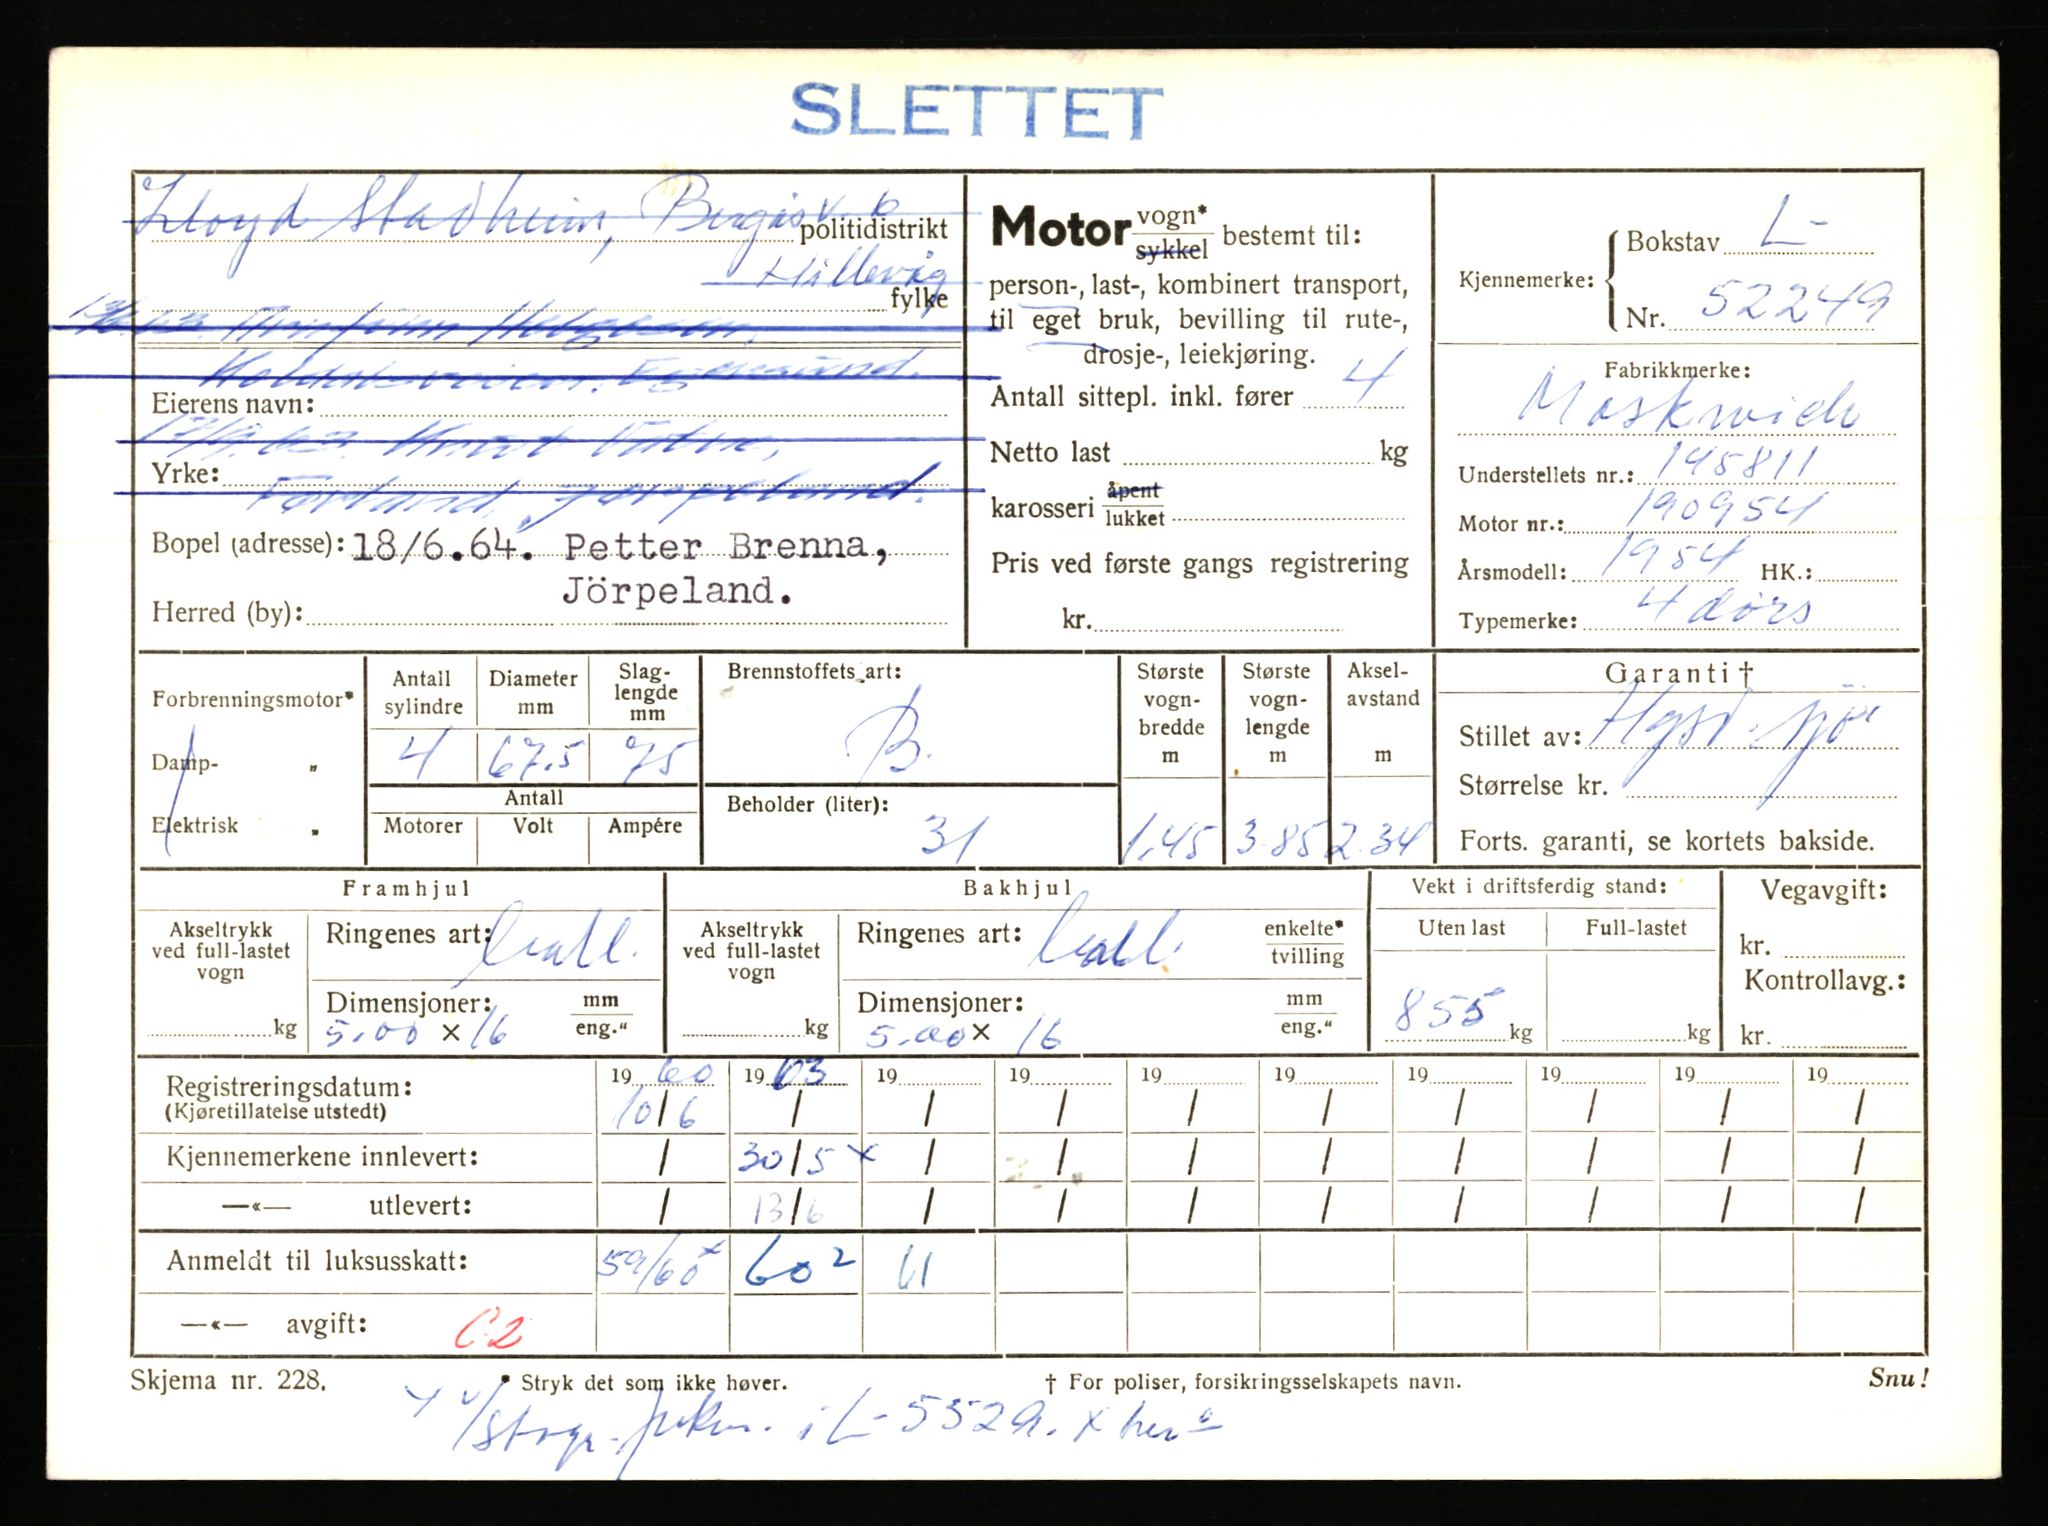 SLETTET
Lloyd Stadheim,
politidistrikt
Hillevåg
fylke
Egersund.
Eierens navn:
Yrke:
Jørpeland.
Bopel (adresse): 18/6.64. Petter Brenna,
Jörpeland.
Herred (by):
Motor vogn* / sykkel bestemt til:
person-, last-, kombinert transport,
til eget bruk, bevilling til rute-,
drosje-, leiekjøring.
Antall sittepl. inkl. fører 4
Netto last kg
karosseri åpent / lukket
Pris ved første gangs registrering
kr.
Kjennemerke: Bokstav L-
Nr. 52249
Fabrikkmerke:
Moskwich
Understellets nr.: 145811
Motor nr.: 190954
Årsmodell: 1954 HK.:
Typemerke: 4 dørs
Forbrenningsmotor*
Damp- „
Elektrisk „
Antall sylindre Diameter mm Slag-lengde mm
4 67.5 75
Antall
Motorer Volt Ampére
Brennstoffets art:
B.
Beholder (liter):
31
Største vogn-bredde m 1.45
Største vogn-lengde m 3.85
Aksel-avstand m 2.34
Garanti †
Stillet av:
Størrelse kr.
Forts. garanti, se kortets bakside.
Framhjul
Akseltrykk ved full-lastet vogn kg
Ringenes art:
Dimensjoner: mm / eng."
5.00 × 16
Bakhjul
Akseltrykk ved full-lastet vogn kg
Ringenes art: enkelte* / tvilling
Dimensjoner: mm / eng."
5.00 × 16
Vekt i driftsferdig stand:
Uten last Full-lastet
855 kg kg
Vegavgift:
kr.
Kontrollavg.:
kr.
Registreringsdatum: 19 60 19 63 19 19 19 19 19 19 19 19
(Kjøretillatelse utstedt) 10/6 / / / / / / / / /
Kjennemerkene innlevert: / 30/5 x / / / / / / / /
—«— utlevert: / 13/6 / / / / / / / /
Anmeldt til luksusskatt: 59/60 x 60 2 61
—«— avgift: C2
Skjema nr. 228.
* Stryk det som ikke høver.
† For poliser, forsikringsselskapets navn.
Snu!
i L- 5529. x